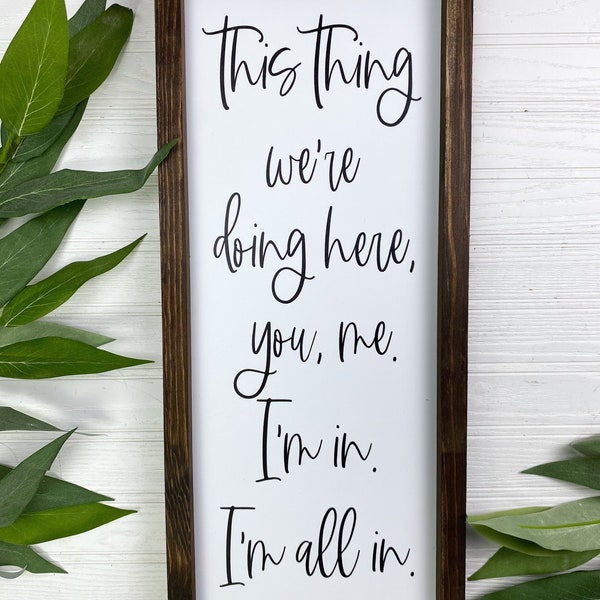 This Thing
we're
doing here,
you, me.
I'm in.
I'm all in.